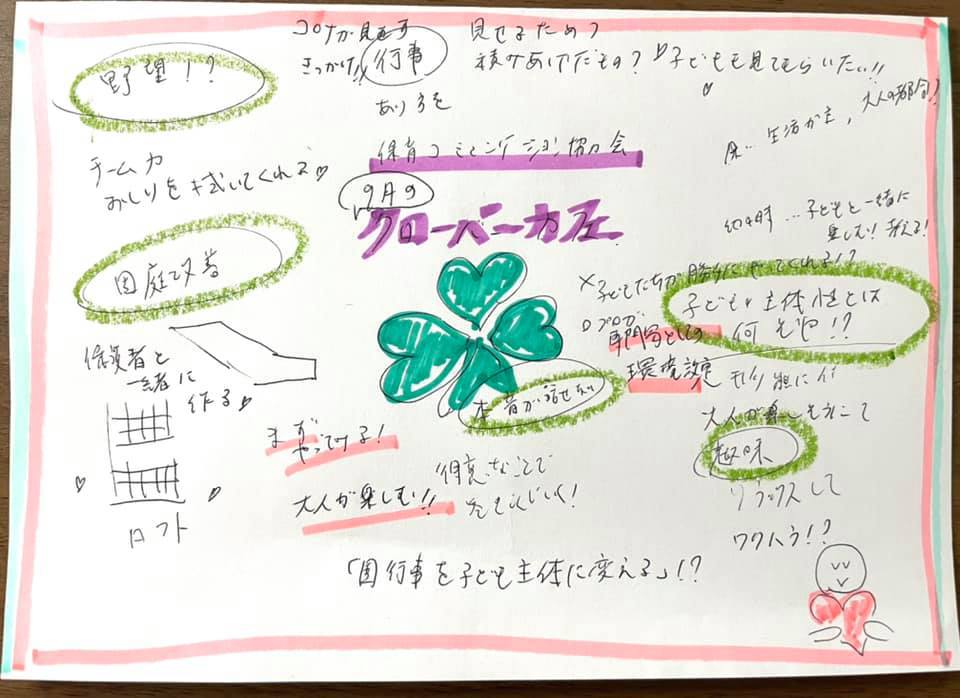 野望!?
コロナが見直す
きっかけ!!
行事
あり方を
見せるため?
積みあげたもの? 子どもを見てもらいたい!!
大人の都合?
生活が主,
保育コミュニケーション協会
チーム力
おしりを拭いてくれる♡
9月9
クローバーカフェ
幼稚園時…子どもと一緒に
楽しむ! 考える!
園庭改善
×子どもたちが勝手にやってくれる!?
子ども主体性とは
何ぞや!?
プロが
専門家としての
環境設定
保護者と
一緒に
作る♡
本音が話せない
大人が楽しそうにして
趣味
まず
やってみる!
大人が楽しむ!!
得意なことで
リラックスして
ワクワク!?
ロフト
「園行事を子ども主体に変える」!?